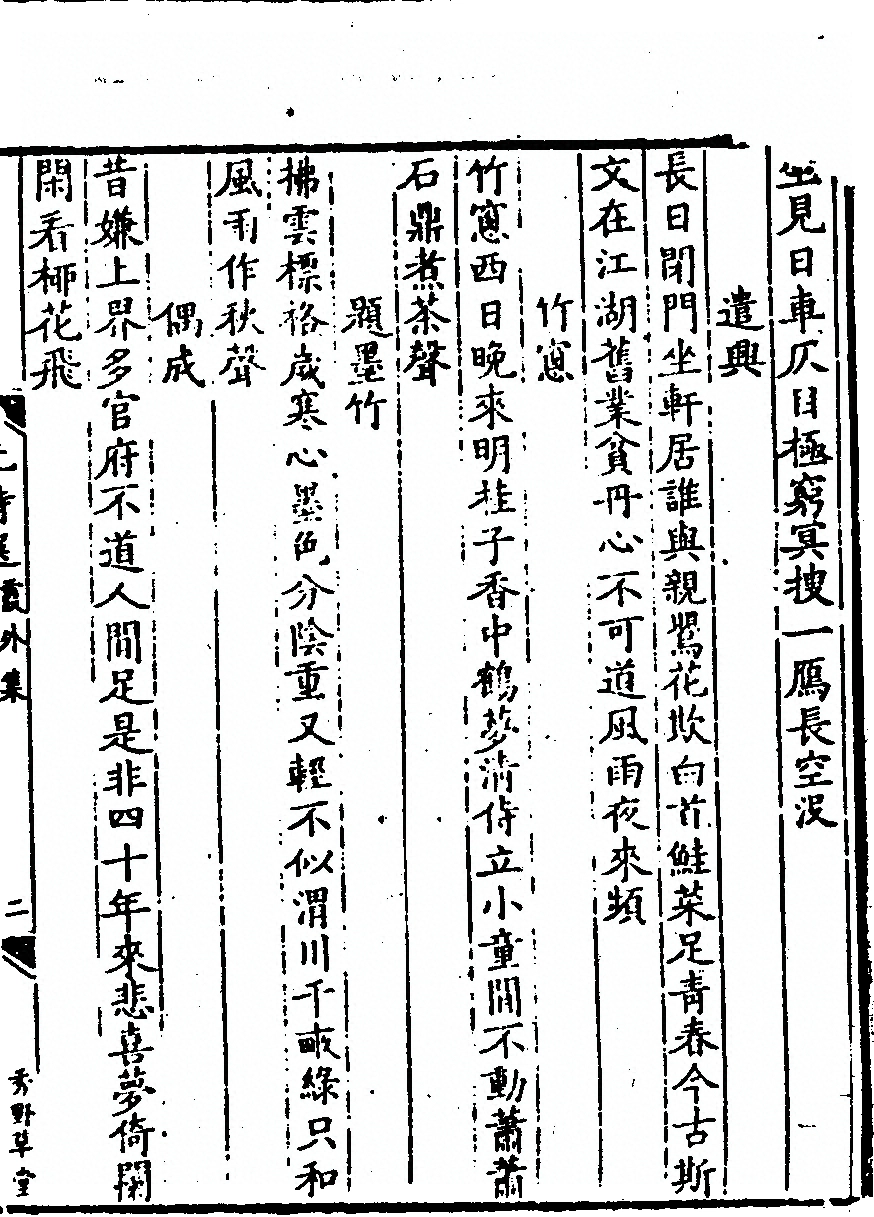 坐見日車仄目極窮冥搜一鴈長空没
遣興
長日閉門坐軒居誰與親鶯花欺白首鮭菜足青春今古斯
文在江湖舊業貧丹心不可道風雨夜來頻
竹窻
竹窻西日晚來明桂子香中鶴夢清侍立小童閒不動蕭蕭
石鼎煮茶聲
題墨竹
拂雲標格歲寒心墨色分陰重又輕不似渭川千畝綠只和
風雨作秋聲
偶成
昔嫌上界多官府不道人間足是非四十年來悲喜夢倚闌
閑看柳花飛
元詩選 外集
二
秀野草堂